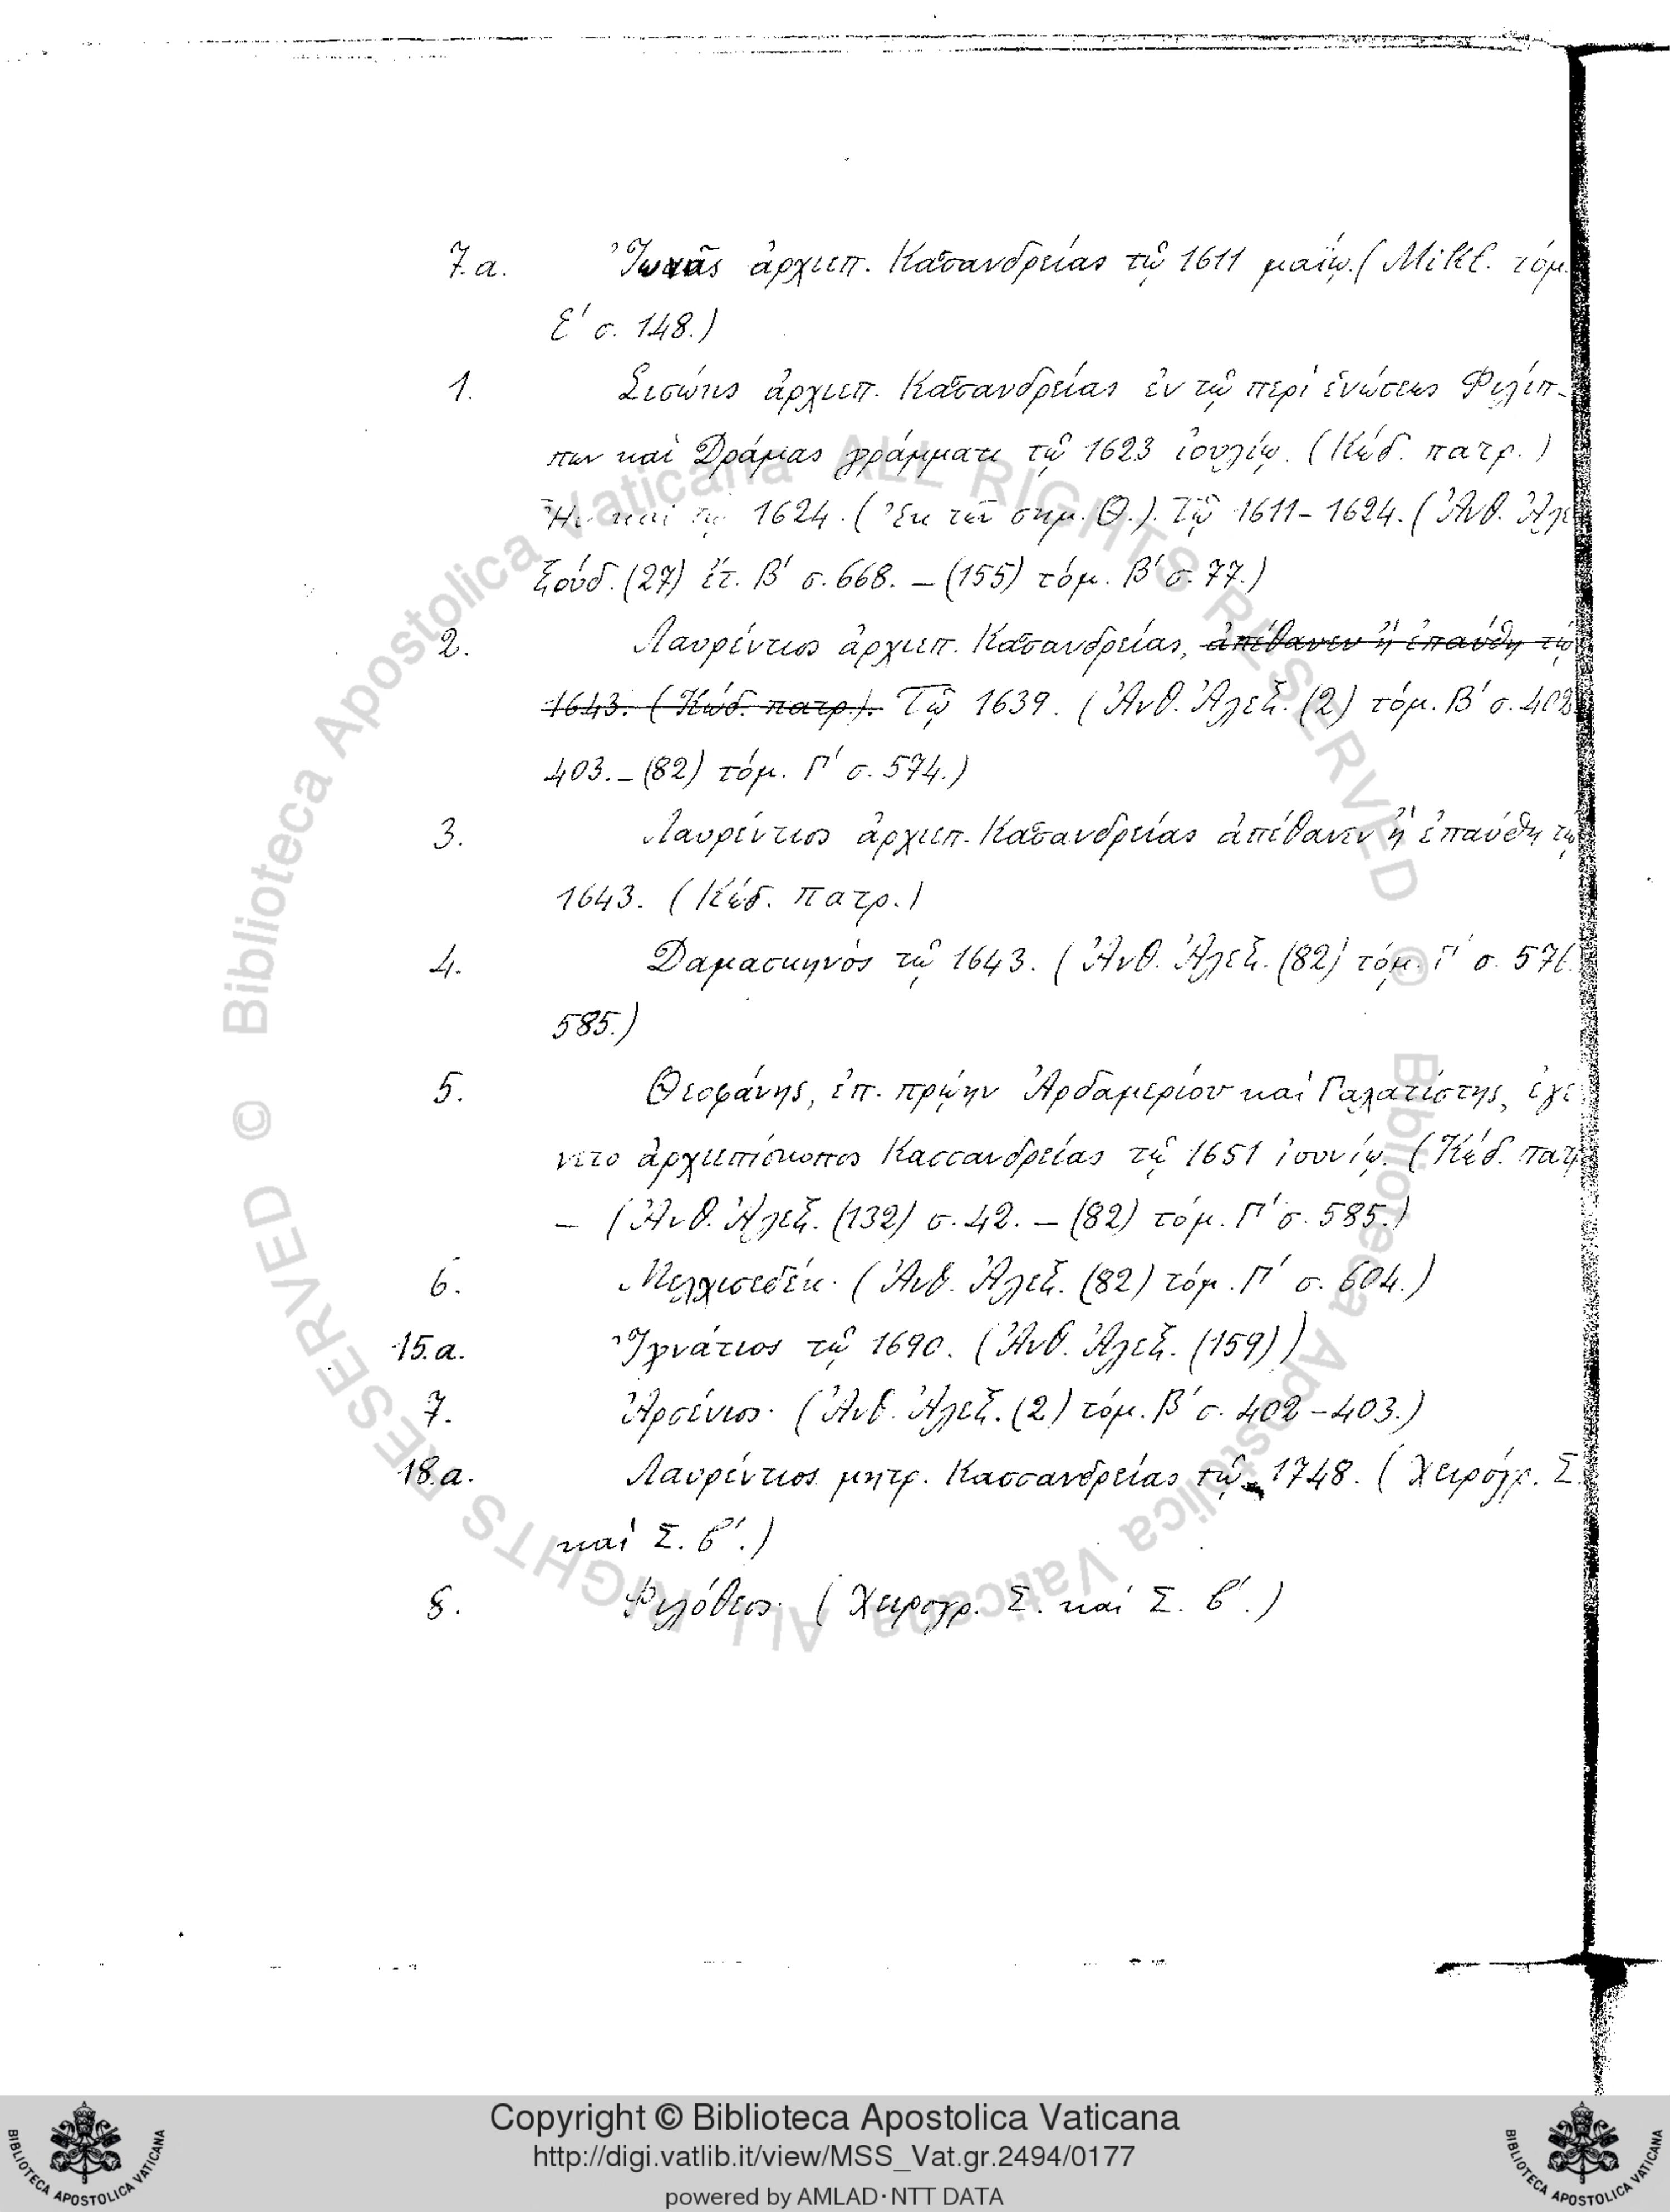 7.α. Ἰωνᾶς ἀρχιεπ. Κασανδρείας τῷ 1611 μαΐῳ. (Mikl. τόμ.
Ε΄ σ. 148.)
1. Σισώης ἀρχιεπ. Κασανδρείας ἐν τῷ περὶ ἑνώσεως Φιλίπ-
πων καὶ Δράμας γράμματι τῷ 1623 ἰουλίῳ. (Κώδ. πατρ.)
Ἦν καὶ τῷ 1624. (Ἐκ τῶν σημ. Θ.). Τῷ 1611-1624. (Ἀνθ. Ἀλε
ξούδ. (27) ἔτ. Β΄ σ. 668. – (155) τόμ. Β΄ σ. 77.)
2. Λαυρέντιος ἀρχιεπ. Κασανδρείας, ἀπέθανεν ἢ ἐπαύθη τῷ
1643. (Κώδ. πατρ.). Τῷ 1639. (Ἀνθ. Ἀλεξ. (2) τόμ. Β΄ σ. 402
403. – (82) τόμ. Γ΄ σ. 574.)
3. Λαυρέντιος ἀρχιεπ. Κασανδρείας ἀπέθανεν ἢ ἐπαύθη τῷ
1643. (Κώδ. πατρ.)
4. Δαμασκηνὸς τῷ 1643. (Ἀνθ. Ἀλεξ. (82) τόμ. Γ΄ σ.
585.)
5. Θεοφάνης, ἐπ. πρώην Ἀρδαμερίου καὶ Γαλατίστης, ἐγέ
νετο ἀρχιεπίσκοπος Κασσανδρείας τῷ 1651 ἰουνίῳ. (Κώδ. πατρ
– (Ἀνθ. Ἀλεξ. (132) σ. 42. – (82) τόμ. Γ΄ σ. 585.)
6. Μελχισεδέκ. (Ἀνθ. Ἀλεξ. (82) τόμ. Γ΄ σ. 604.)
15.α. Ἰγνάτιος τῷ 1690. (Ἀνθ. Ἀλεξ. (159))
7. Ἀρσένιος. (Ἀνθ. Ἀλεξ. (2) τόμ. Β΄ σ. 402-403.)
18.α. Λαυρέντιος μητρ. Κασσανδρείας τῷ 1748. (Χειρόγρ. Σ.
καὶ Σ. β΄.)
8. Φιλόθεος. (Χειρογρ. Σ. καὶ Σ. β΄.)
© Biblioteca Apostolica Vaticana ALL RIGHTS RESERVED
© Biblioteca Apostolica Vaticana ALL RIGHTS RESERVED
BIBLIOTECA APOSTOLICA VATICANA
Copyright © Biblioteca Apostolica Vaticana
http://digi.vatlib.it/view/MSS_Vat.gr.2494/0177
powered by AMLAD·NTT DATA
BIBLIOTECA APOSTOLICA VATICANA